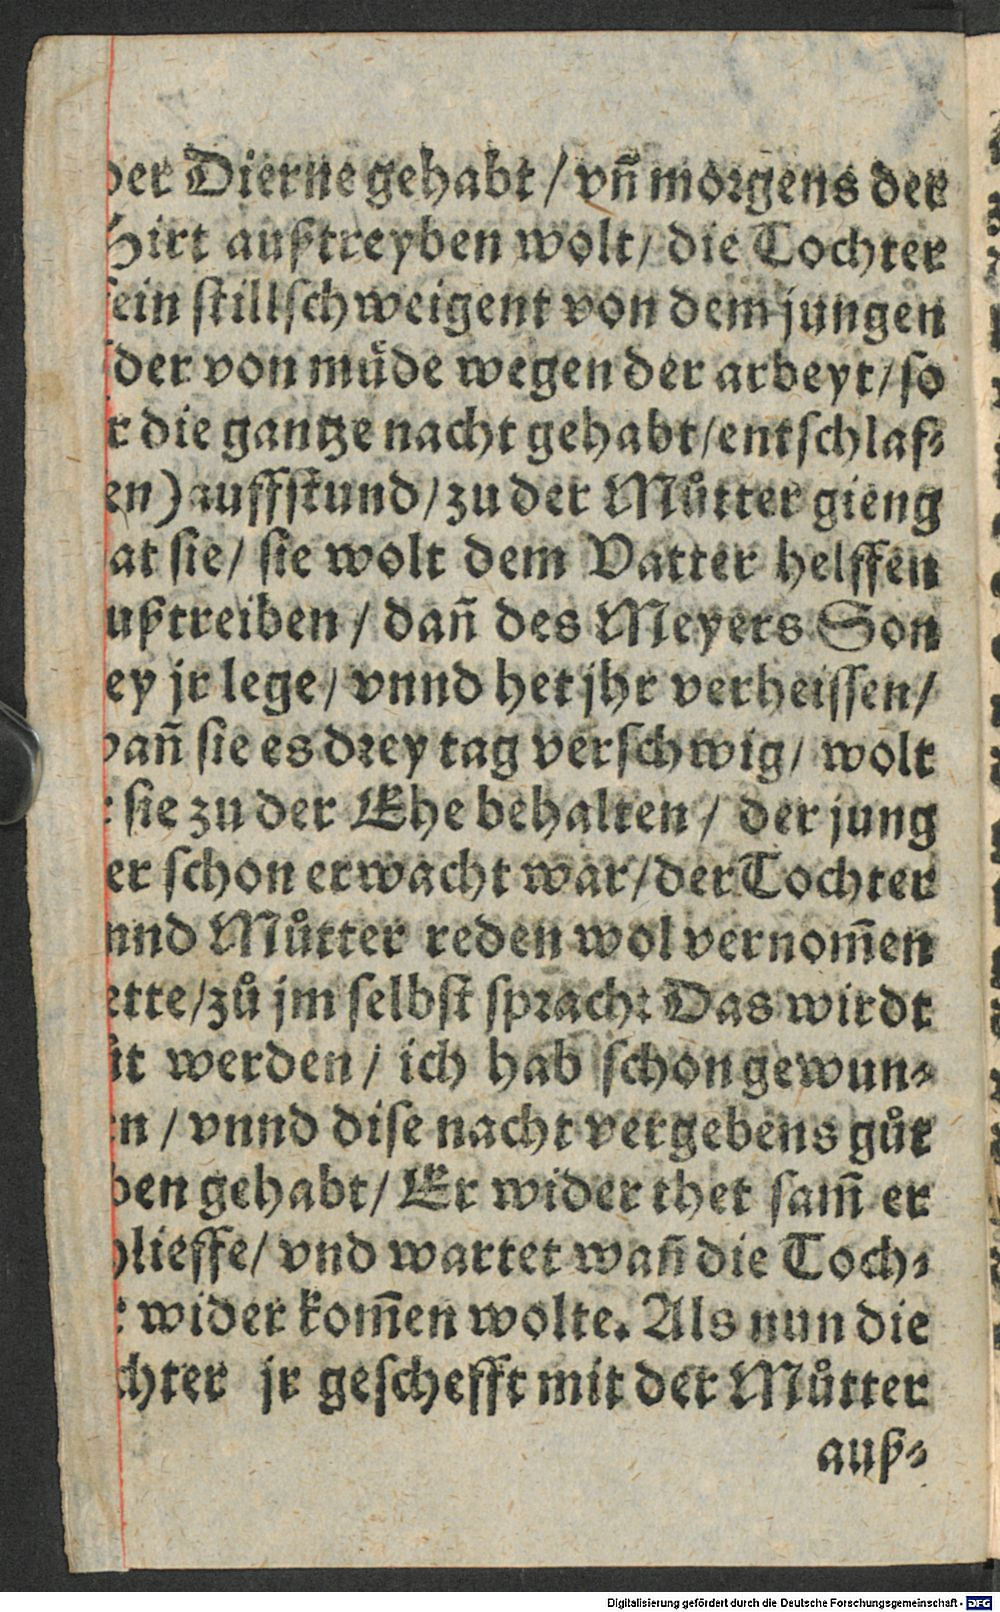 der Dierne gehabt / vñ morgens der
Hirt außtreyben wolt / die Tochter
fein stillschweigent von dem jungen
der von muͤde wegen der arbeyt / so
r die gantze nacht gehabt / entschlaf⸗
en) auffstund / zu der Muͦtter gieng
at sie / sie wolt dem Vatter helffen
ußtreiben / dañ des Meyers Son
ey jr lege / vnnd het jhr verheissen /
wañ sie es drey tag verschwig / wolt
sie zu der Ehe behalten / der jung
er schon erwacht war / der Tochter
nnd Muͦtter reden wol vernom̃en
ette / zuͦ jm selbst sprach: Das wirdt
it werden / ich hab schon gewun⸗
n / vnnd dise nacht vergebens guͦt
ben gehabt / Er wider thet sam̃ er
hlieffe / vnd wartet wañ die Toch⸗
wider kom̃en wolte. Als nun die
chter jr geschefft mit der Muͦtter
auß⸗
Digitalisierung gefördert durch die Deutsche Forschungsgemeinschaft - DFG